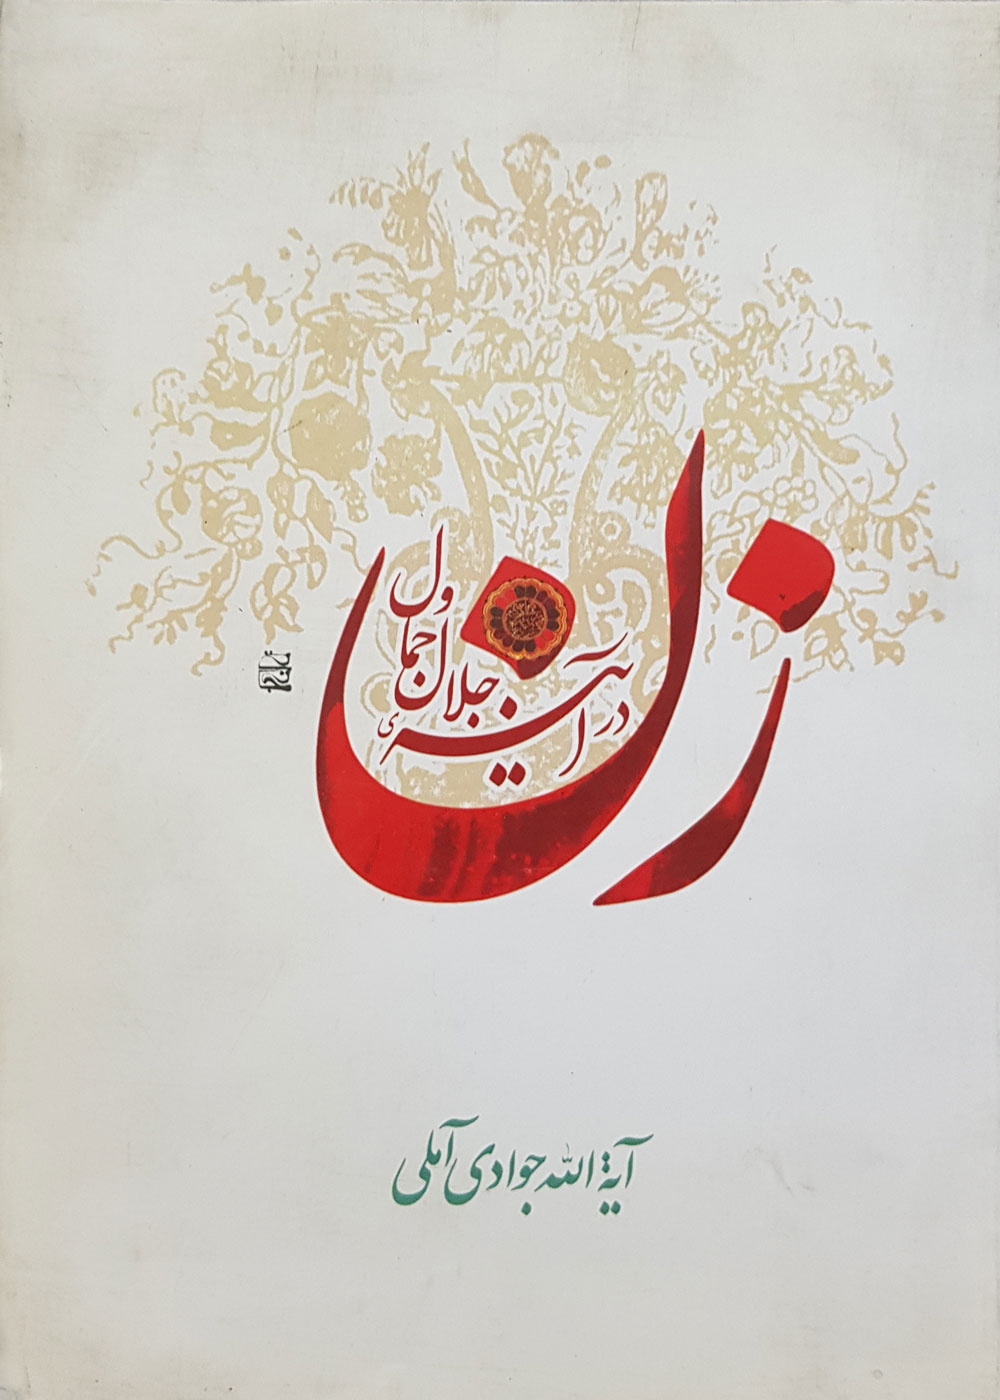 زن
در آینهٔ جلال و جمال
آیة الله جوادی آملی